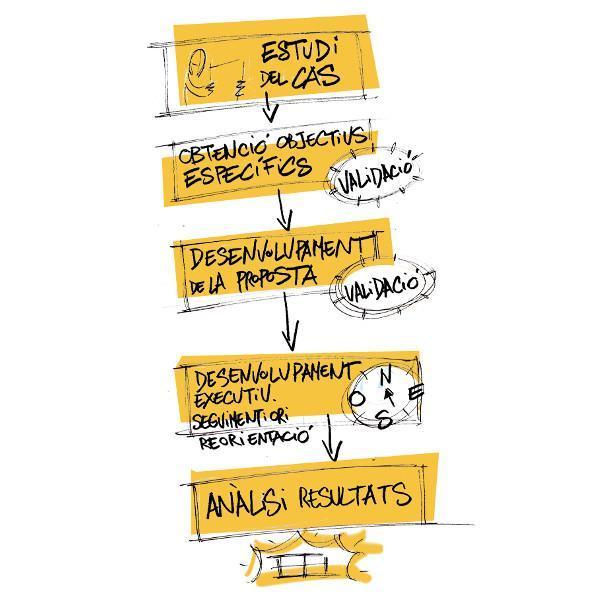 ESTUDI
DEL CAS
OBTENCIÓ OBJECTIUS
ESPECÍFICS
VALIDACIÓ
DESENVOLUPAMENT
DE LA PROPOSTA
VALIDACIÓ
DESENVOLUPAMENT
EXECUTIU.
SEGUIMENT I ORI
REORIENTACIÓ
N
O E
S
ANÀLISI RESULTATS